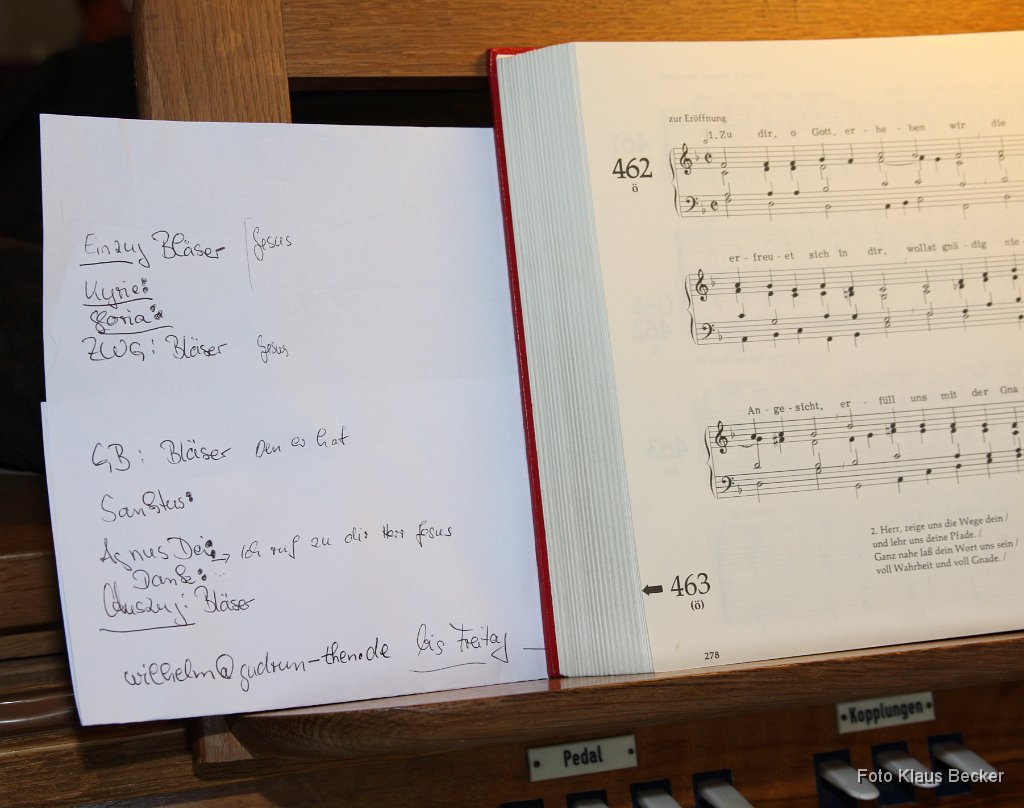 Einzug Bläser Jesus
Kyrie:
Gloria:
ZWG: Bläser Jesus
GB: Bläser Den es hat
Sanktus:
Agnus Dei: → Ich ruf zu dir Herr Jesus
Dank:
Auszug: Bläser
wilhelm@gudrun-then.de bis Freitag
zur Eröffnung
462
ö
1. Zu dir, o Gott, er - he - ben wir die
er - freu - et sich in dir, wollst gnä - dig nie
An - ge - sicht, er - füll uns mit der Gna
2. Herr, zeige uns die Wege dein /
und lehr uns deine Pfade. /
Ganz nahe laß dein Wort uns sein /
voll Wahrheit und voll Gnade. /
463
(ö)
278
Pedal
Kopplungen
Foto Klaus Becker